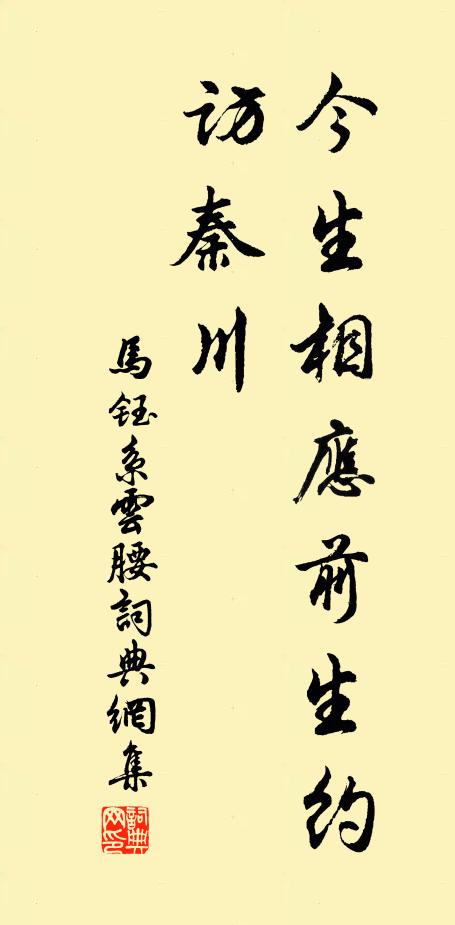 今生相應前生約
訪秦川
馬鈺系雲腰詞典網集
詞典網印